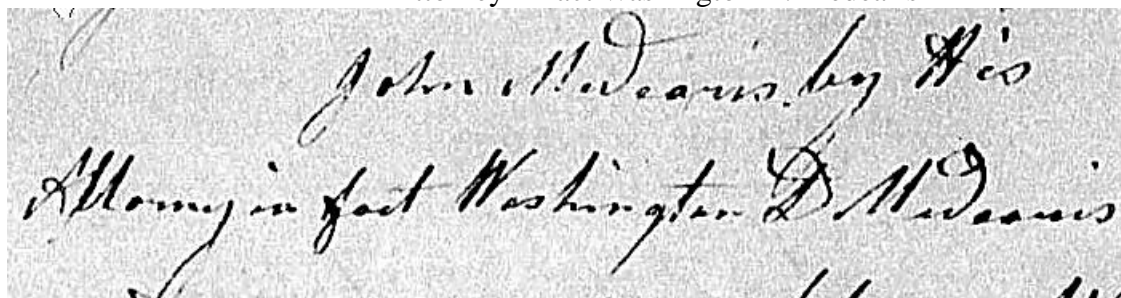 John Medearis by His
Attorney in fact Washington D Medearis